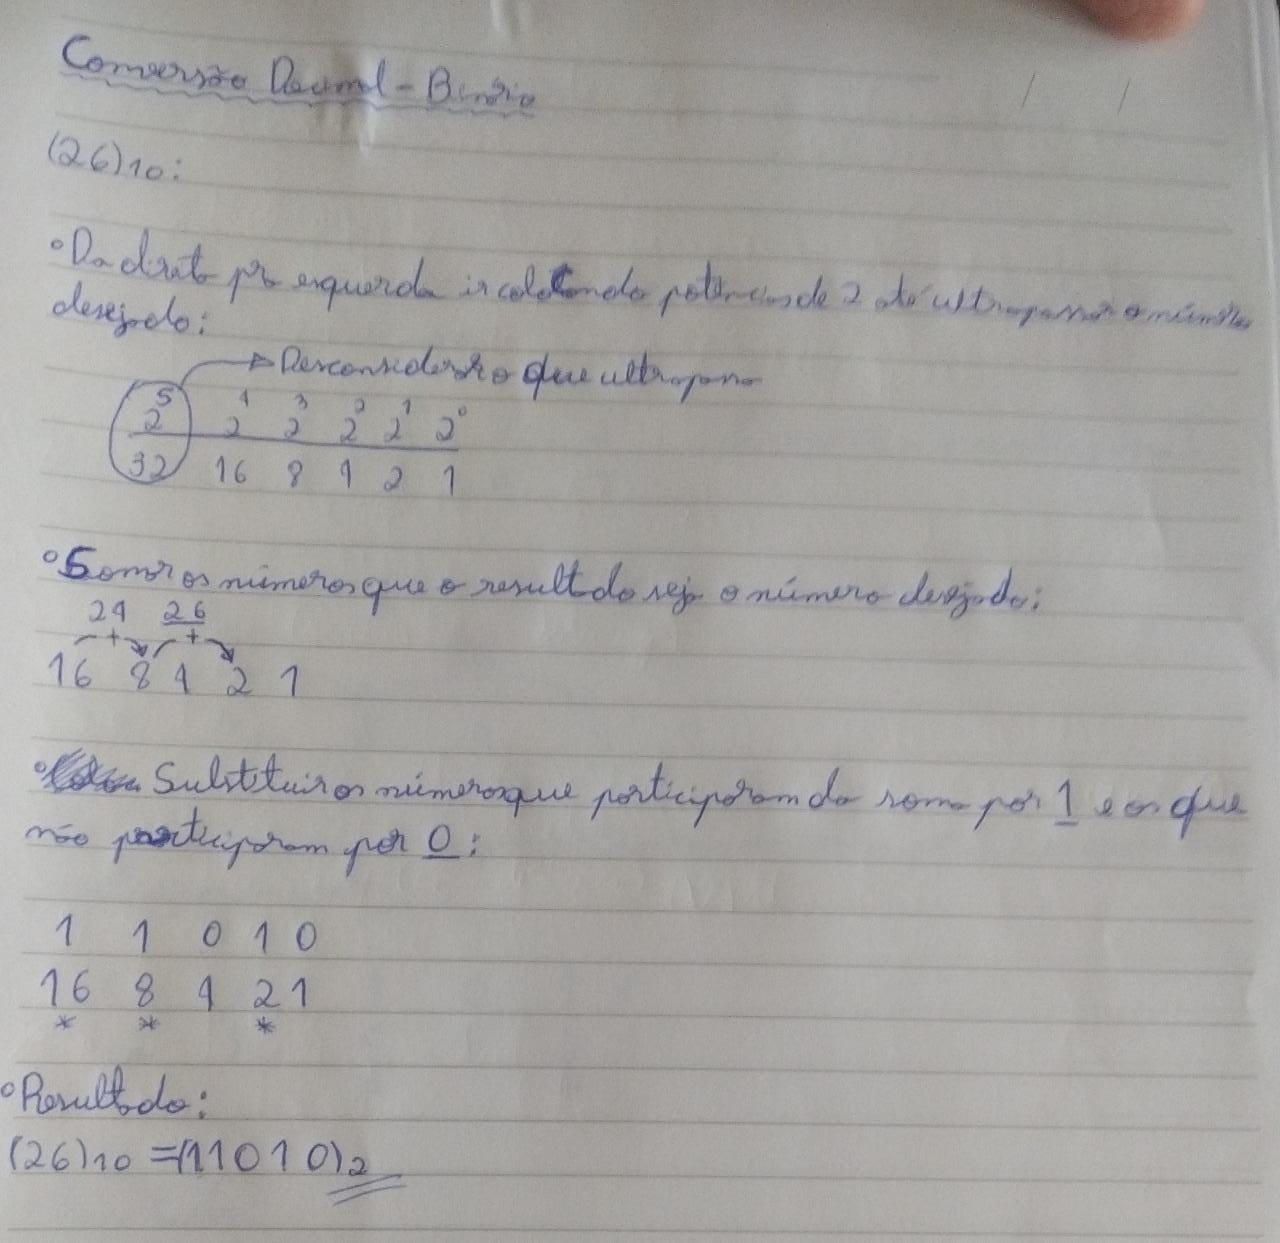 Conversão Decimal - Binário
(26)10:
• Da direita pra esquerda ir colocando potências de 2 até ultrapassar o número
desejado:
Desconsiderar o que ultrapassa
2^5 2^4 2^3 2^2 2^1 2^0
32 16 8 4 2 1
• Somar os números que o resultado seja o número desejado:
24 26
+ +
16 8 4 2 1
• Substituir os números que participaram da soma por 1 e os que
não participaram por 0:
1 1 0 1 0
16 8 4 2 1
* * *
• Resultado:
(26)10 = (11010)2